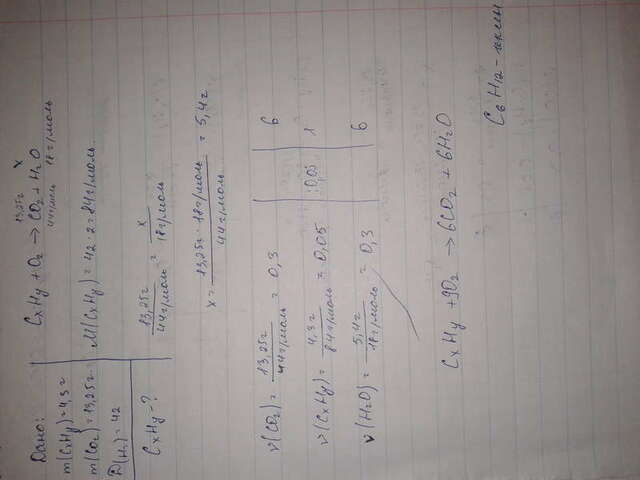 Дано:
m(CxHy)=4,3г
m(CO2)=13,25г
D(H2)=42
CxHy-?
13,25г x
CxHy + O2 → CO2 + H2O
44г/моль 18г/моль
M(CxHy)=42·2=84г/моль
13,25г / 44г/моль = x / 18г/моль
x = 13,25г·18г/моль / 44г/моль = 5,4г
ν(CO2) = 13,25г / 44г/моль = 0,3 | | 6
ν(CxHy) = 4,3г / 84г/моль = 0,05 | :0,05 | 1
ν(H2O) = 5,4г / 18г/моль = 0,3 | | 6
CxHy + 9O2 → 6CO2 + 6H2O
C6H12 -